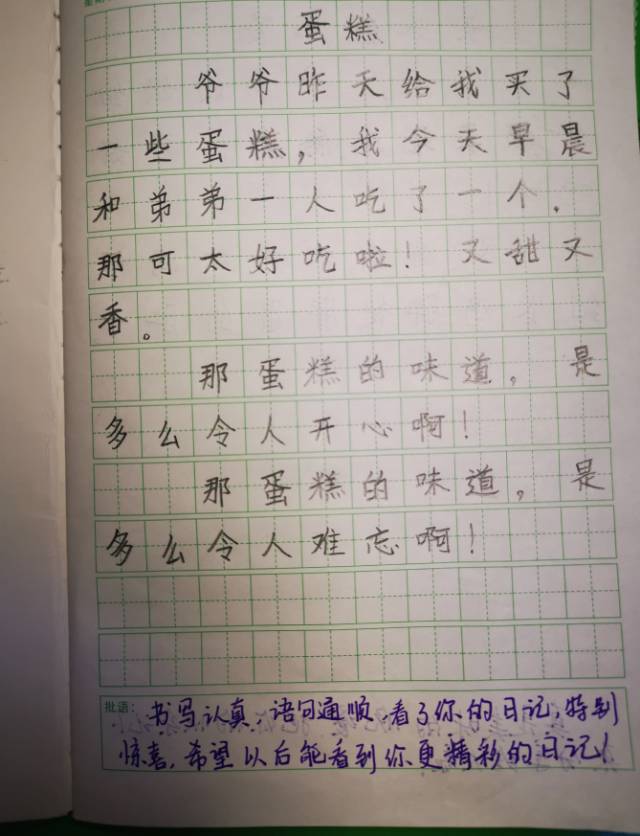 蛋糕
爷爷昨天给我买了
一些蛋糕，我今天早晨
和弟弟一人吃了一个.
那可太好吃啦！又甜又
香。
那蛋糕的味道，是
多么令人开心啊！
那蛋糕的味道，是
多么令人难忘啊！
批语：书写认真，语句通顺，看了你的日记，特别
惊喜，希望以后能看到你更精彩的日记！